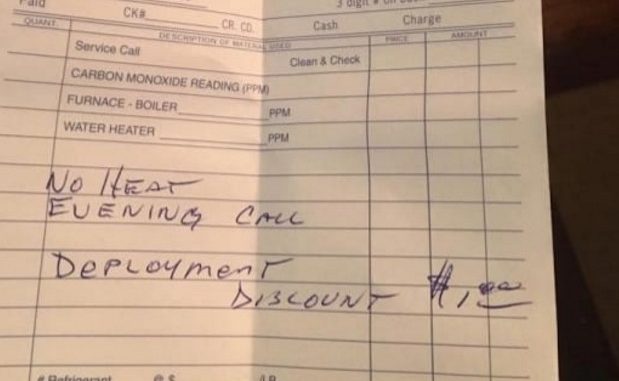 Paid CK# CR. CD. Cash Charge
QUANT. DESCRIPTION OF MATERIAL USED PRICE AMOUNT
Service Call Clean & Check
CARBON MONOXIDE READING (PPM)
FURNACE - BOILER PPM
WATER HEATER PPM
NO HEAT
EVENING CALL
DEPLOYMENT
DISCOUNT $1,00
# Refrigerant @ $